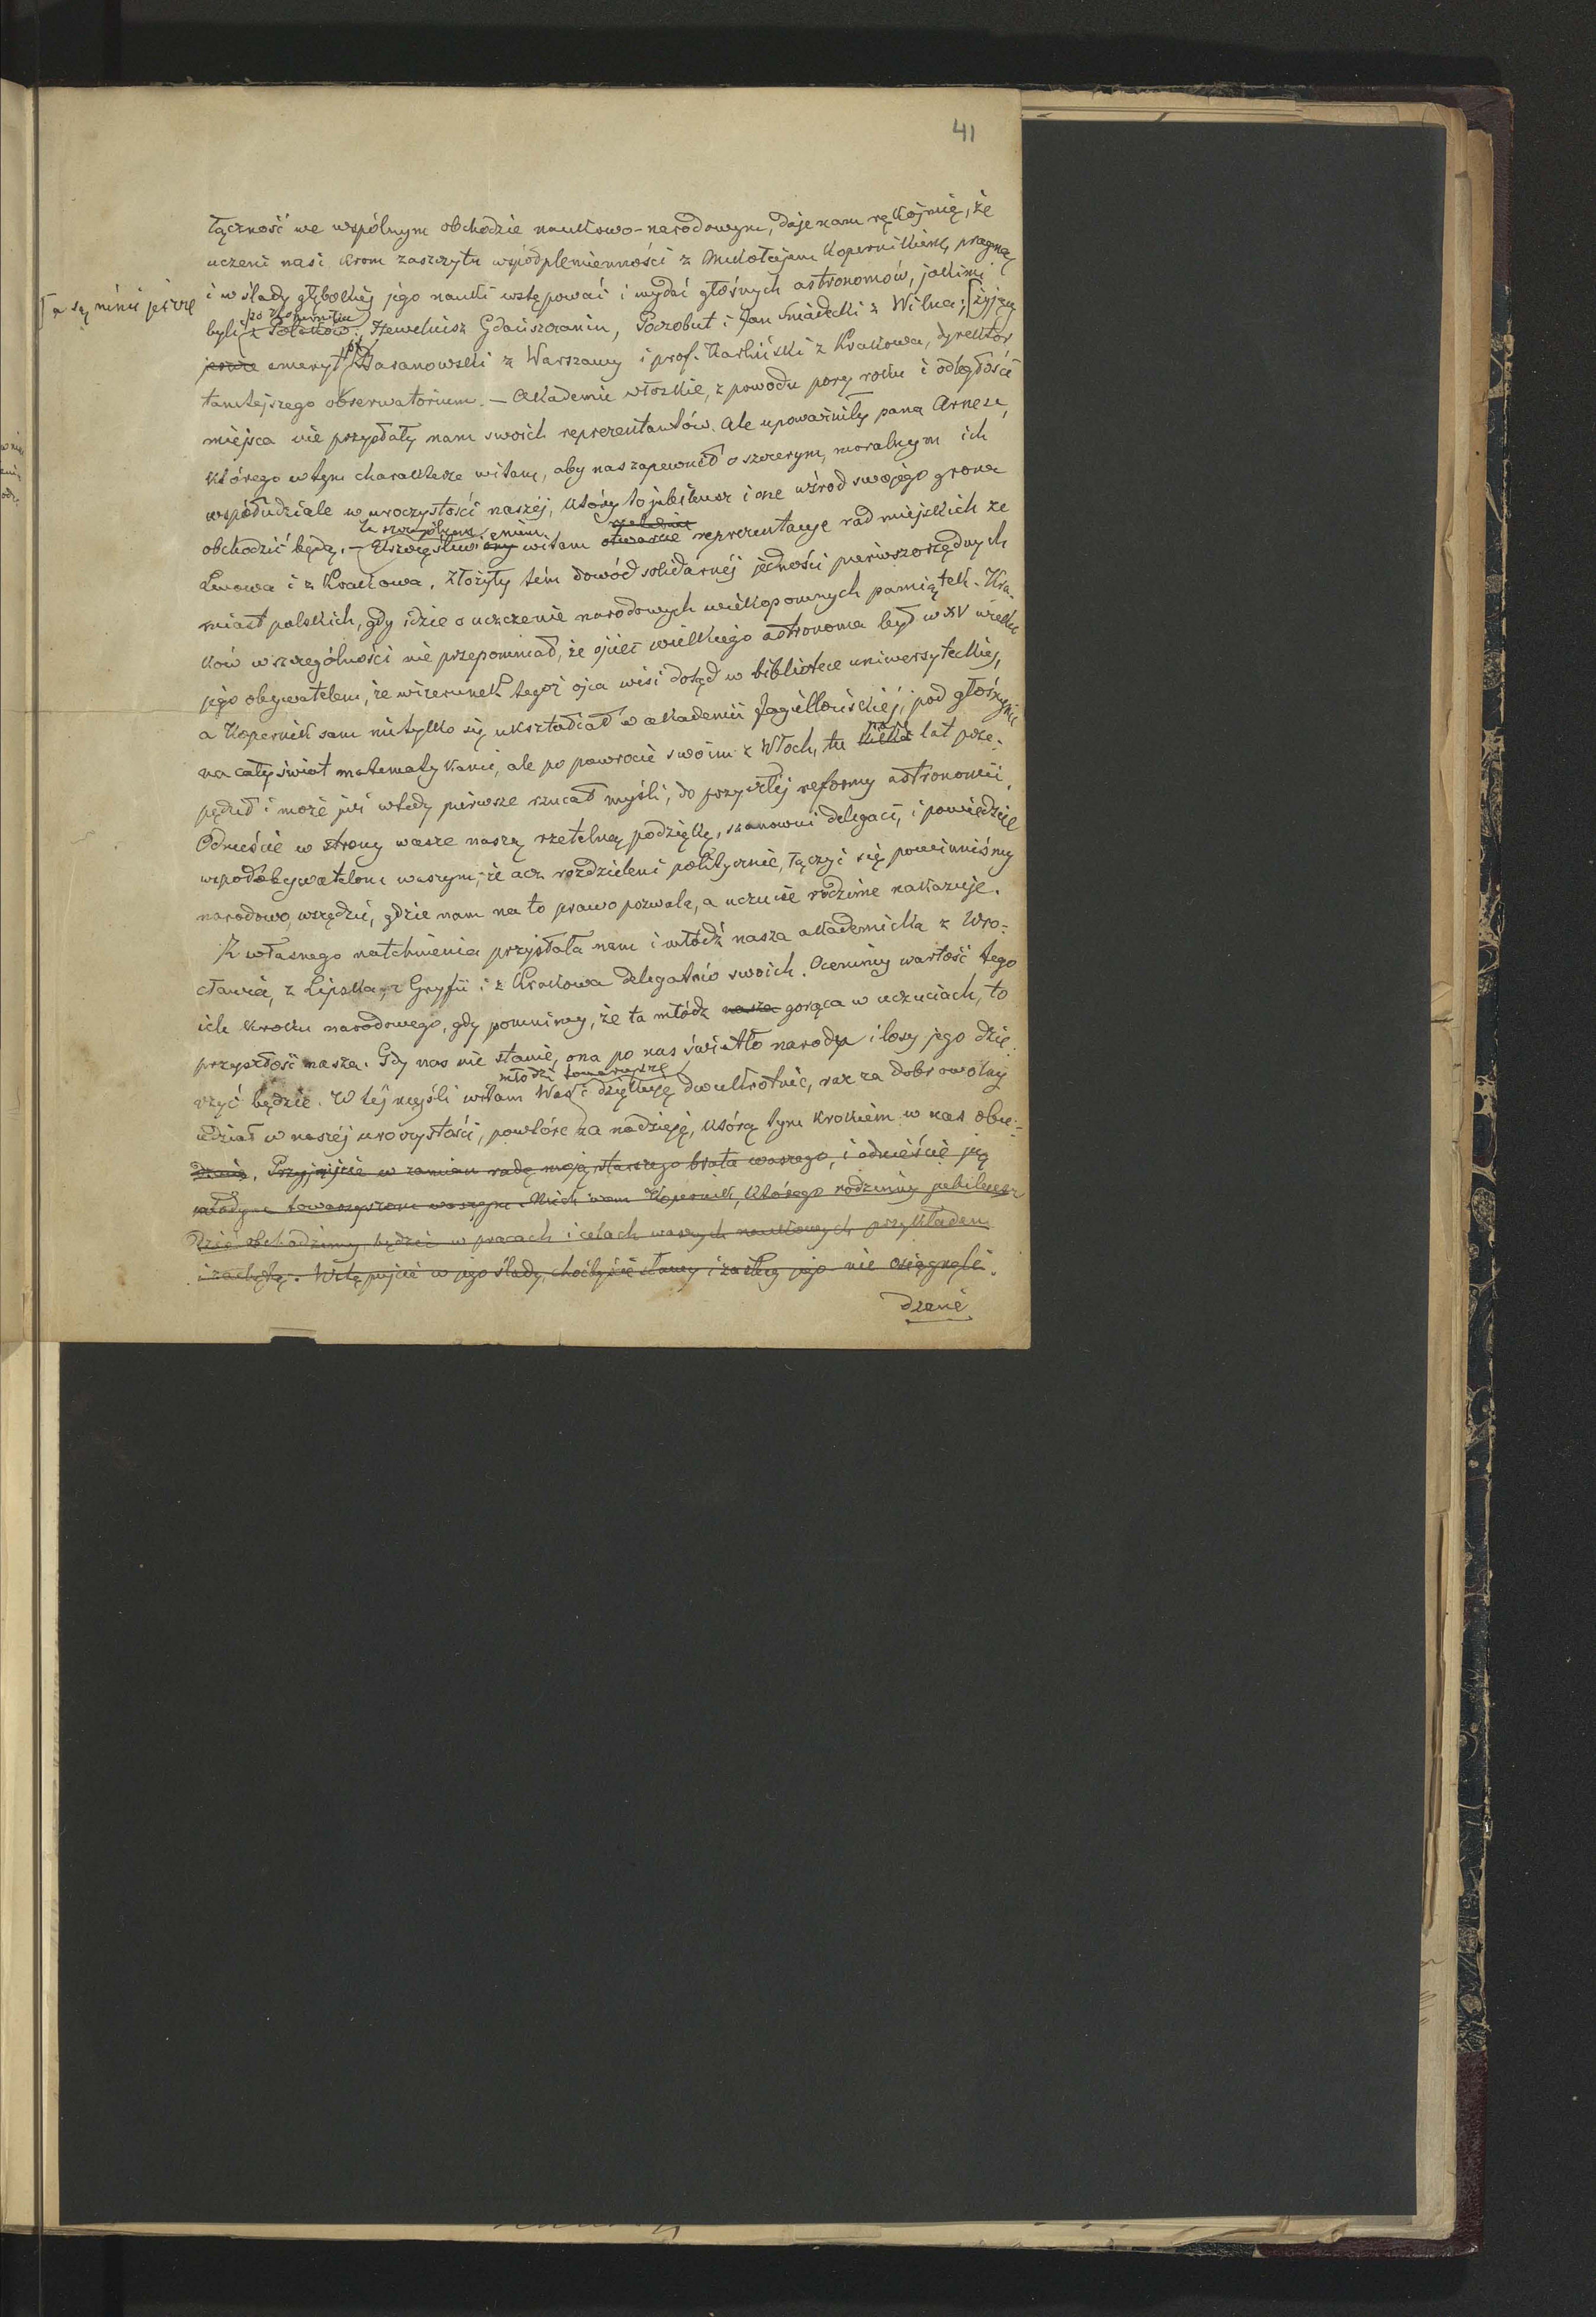 41
łączność we wspólnym obchodzie naukowo-narodowym, daje nam rękojmię, że
uczeni nasi krom zaszczytu współplemienności z Mikołajem Kopernikiem, pragną
i w ślady głębokiéj jego nauki wstępować i wydać głośnych astronomów, jakimi
[a są ninie jeszcze
po Koperniku
byli z Polaków: Heweliusz Gdańszczanin, Poczobut i Jan Śniadecki z Wilna; [żyjący
jeszcze emeryt Baranowski z Warszawy i prof. Karliński z Krakowa, dyrektor
tamtejszego obserwatorium. — Akademie włoskie, z powodu pory roku i odległości
miejsca nie przysłały nam swoich reprezentantów. Ale upoważniły pana Arnese,
którego w tym charakterze witam, aby nas zapewnił o szczerym, moralnym ich
współudziale w uroczystości naszéj, który to jubileusz i one wśród swojego grona
obchodzić będą. — Uszczęśliwiony witam otwarcie reprezentacye rad miejskich ze
Lwowa i z Krakowa. Złożyły tém dowód solidarnéj jedności pierwszorzędnych
miast polskich, gdy idzie o uczczenie narodowych wiekopomnych pamiątek. Kra-
ków w szczególności nie przepomniał, że ojciec wielkiego astronoma był w XV wieku
jego obywatelem, że wizerunek tegoż ojca wisi dotąd w bibliotece uniwersyteckiéj,
a Kopernik sam nietylko się ukształcał w akademii Jagiellońskiéj, pod głośnymi
na cały świat matematykami, ale po powrocie swoim z Włoch, tu kilka parę lat prze-
pędził i może już wtedy pierwsze rzucał myśli, do przyszłéj reformy astronomii.
Odnieście w strony wasze naszą rzetelną podziękę, szanowni delegaci, i powiedzcie
współobywatelom waszym, że acz rozdzieleni politycznie, łączyć się powinniśmy
narodowo, wszędzie, gdzie nam na to prawo pozwala, a uczucie rodzime nakazuje.
Z własnego natchnienia przysłała nam i młódź nasza akademicka z Wro-
cławia, z Lipska, z Gryfii i z Krakowa delegatów swoich. Ocenimy wartość tego
ich kroku narodowego, gdy pomnimy, że ta młódz nasza gorąca w uczuciach, to
przyszłość nasza. Gdy nas nie stanie, ona po nas światło narodu i losy jego dzie-
młodzi towarzysze
rzyć będzie. W téj myśli witam Was i dziękuję dwukrotnie, raz za dobrowolny
udział w naszéj uroczystości, powtóre za nadzieję, którą tym krokiem w nas obu-
dzacie. Przyjmijcie w zamian radę moją starszego brata waszego, i odnieście ją
młodym towarzyszom waszym. Niech wam Kopernik, którego rodzinny jubileusz
dziś obchodzimy, będzie w pracach i celach waszych naukowych przykładem
i zachętą. Wstępujcie w jego ślady, choćbyście sławy i zasług jego nie osiągnęli.